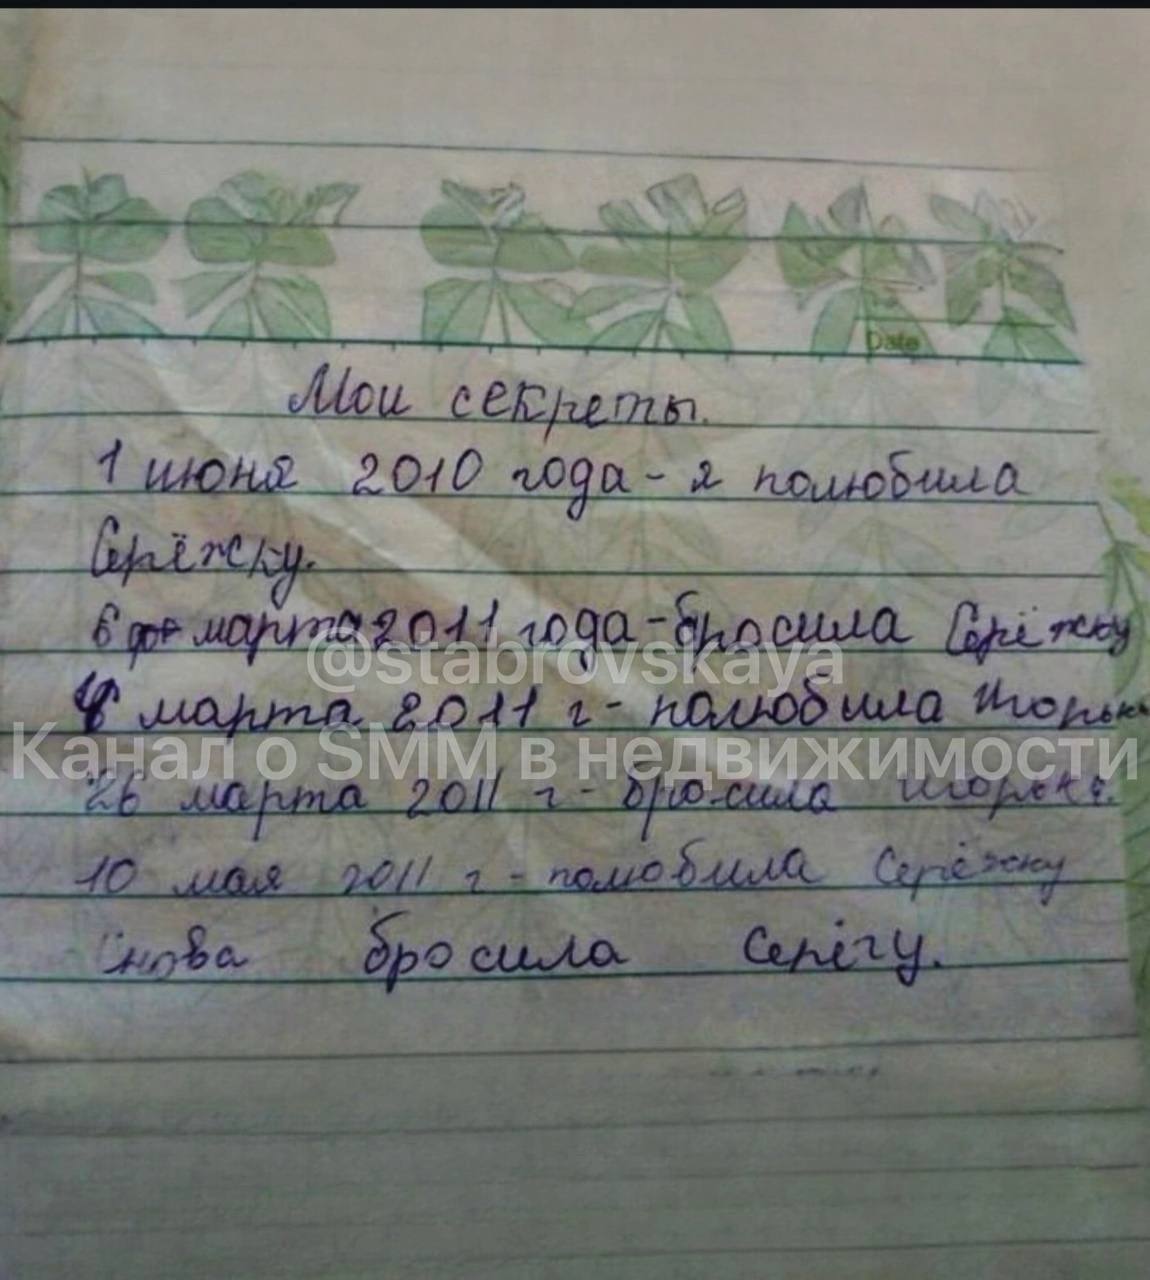 Date
Мои секреты.
1 июня 2010 года - я полюбила
Серёжку.
6 марта 2011 года - бросила Серёжку
@stabrovskaya
марта 2011 г - полюбила Игорька
Канал о SMM в недвижимости
26 марта 2011 г - бросила Игорька.
10 мая 2011 г - полюбила Серёжку
Снова бросила Серёгу.